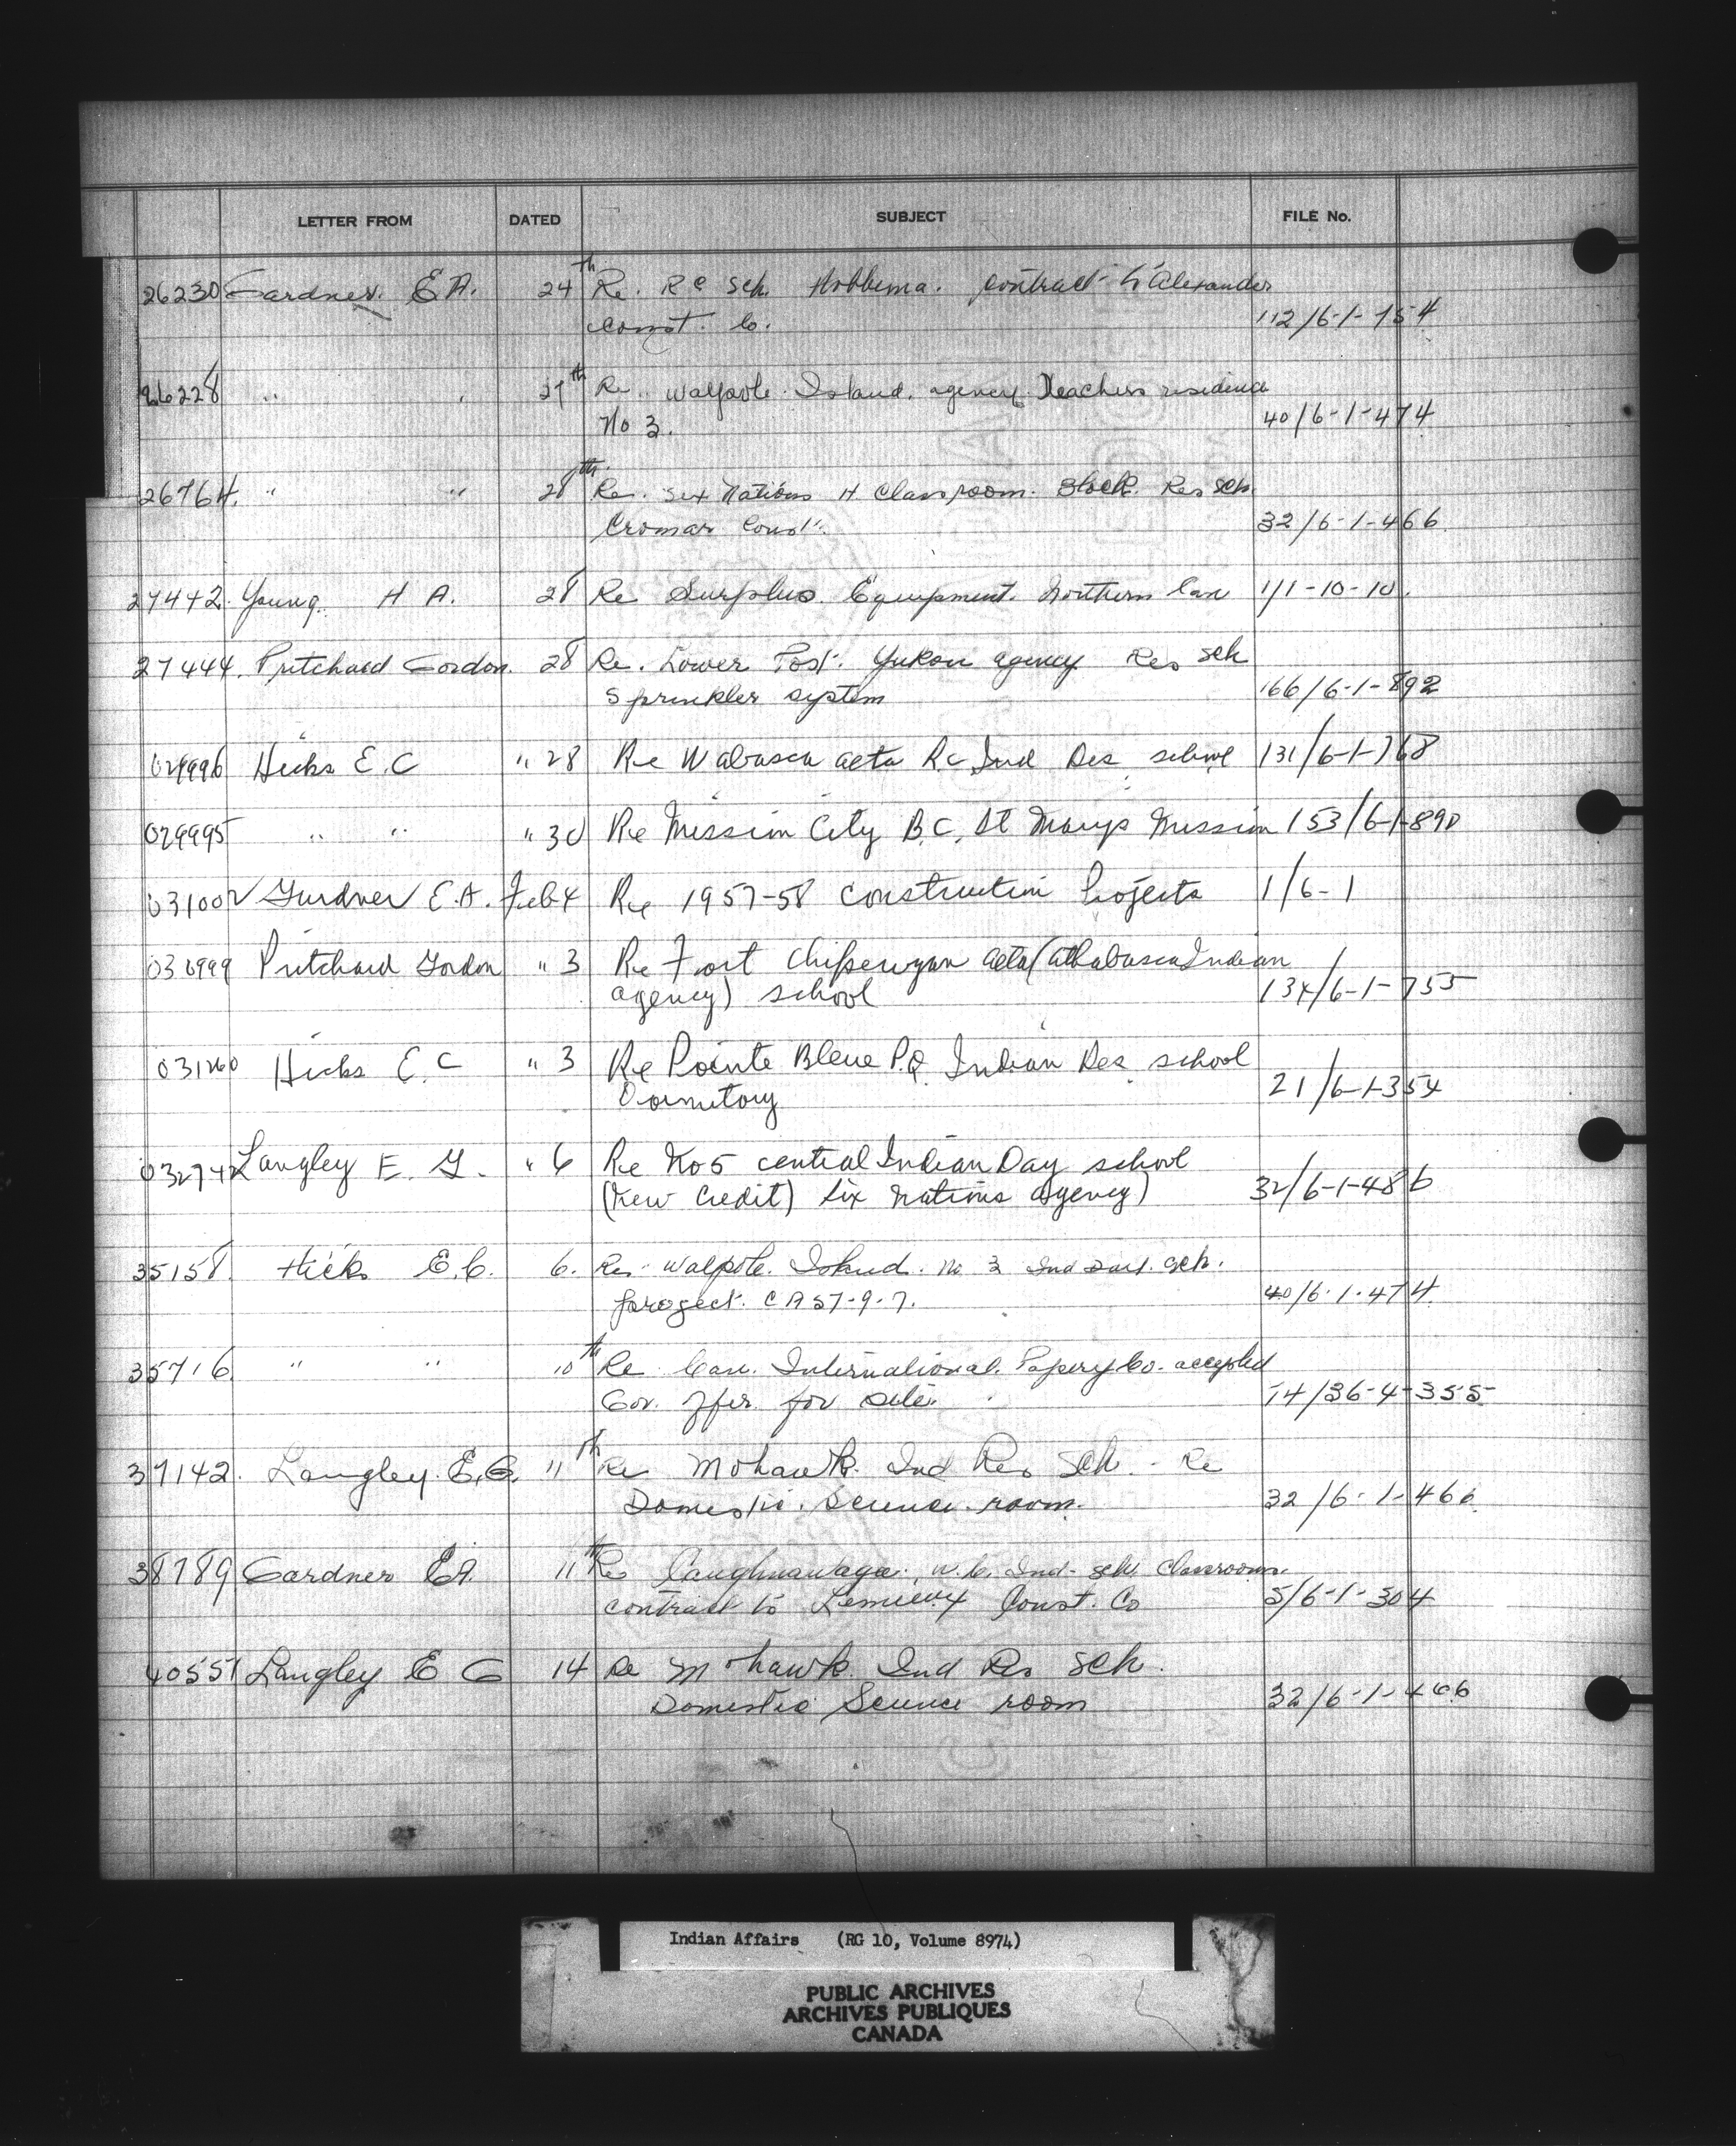 LETTER FROM DATED SUBJECT FILE No.
26230 Gardner. E A. 24th Re. R C Sch. Hobbema. Contract to Alexander
Const. Co. 112/6-1-154
26228 " " 27th Re. Walpole Island. agency Teachers residence
No 3. 40/6-1-474
26764. " " 28th Re. Six Nations 4 Classroom. Block. Res Sch.
Cromar Const. 32/6-1-466
27442. Young. H A. 28 Re Surplus. Equipment. Northern Can 1/1-10-10.
27444. Pritchard Gordon. 28 Re. Lower Post. Yukon agency Res Sch
Sprinkler system 166/6-1-892
029996 Hicks E.C " 28 Re Wabasca alta R.C Ind Res. school 131/6-1-768
029995 " " " 30 Re Mission City B.C. St Marys Mission 153/6-1-890
031002 Gardner E.A. Feb 4 Re 1957-58 construction Projects 1/6-1
030999 Pritchard Gordon " 3 Re Fort Chipewyan alta (Athabasca Indian
agency) school 134/6-1-755
031260 Hicks E.C " 3 Re Pointe Bleue P.Q. Indian Res. school
Dormitory 21/6-1-354
032742 Langley E. G. " 6 Re No 5 central Indian Day school
(New Credit) Six Nations agency) 32/6-1-486
35158. Hicks E.C. 6. Re. Walpole. Island. No 3 Ind Day. Sch.
project. C A 57-9-7. 40/6-1-474
35716 " " 10th Re Can. International. Paper Co. accepted
Gov. offer. for site. 14/36-4-355
37142. Langley. E.G. 11th Re Mohawk. Ind Res Sch. - Re
Domestic. Science. room. 32/6-1-466
38789 Gardner EA. 11th Re Caughnawaga. Ind. Sch. Classroom.
contract to Lemieux Const. Co 5/6-1-304
40557 Langley E G 14 Re Mohawk. Ind Res Sch.
Domestic Science room 32/6-1-466
Indian Affairs (RG 10, Volume 8974)
PUBLIC ARCHIVES
ARCHIVES PUBLIQUES
CANADA